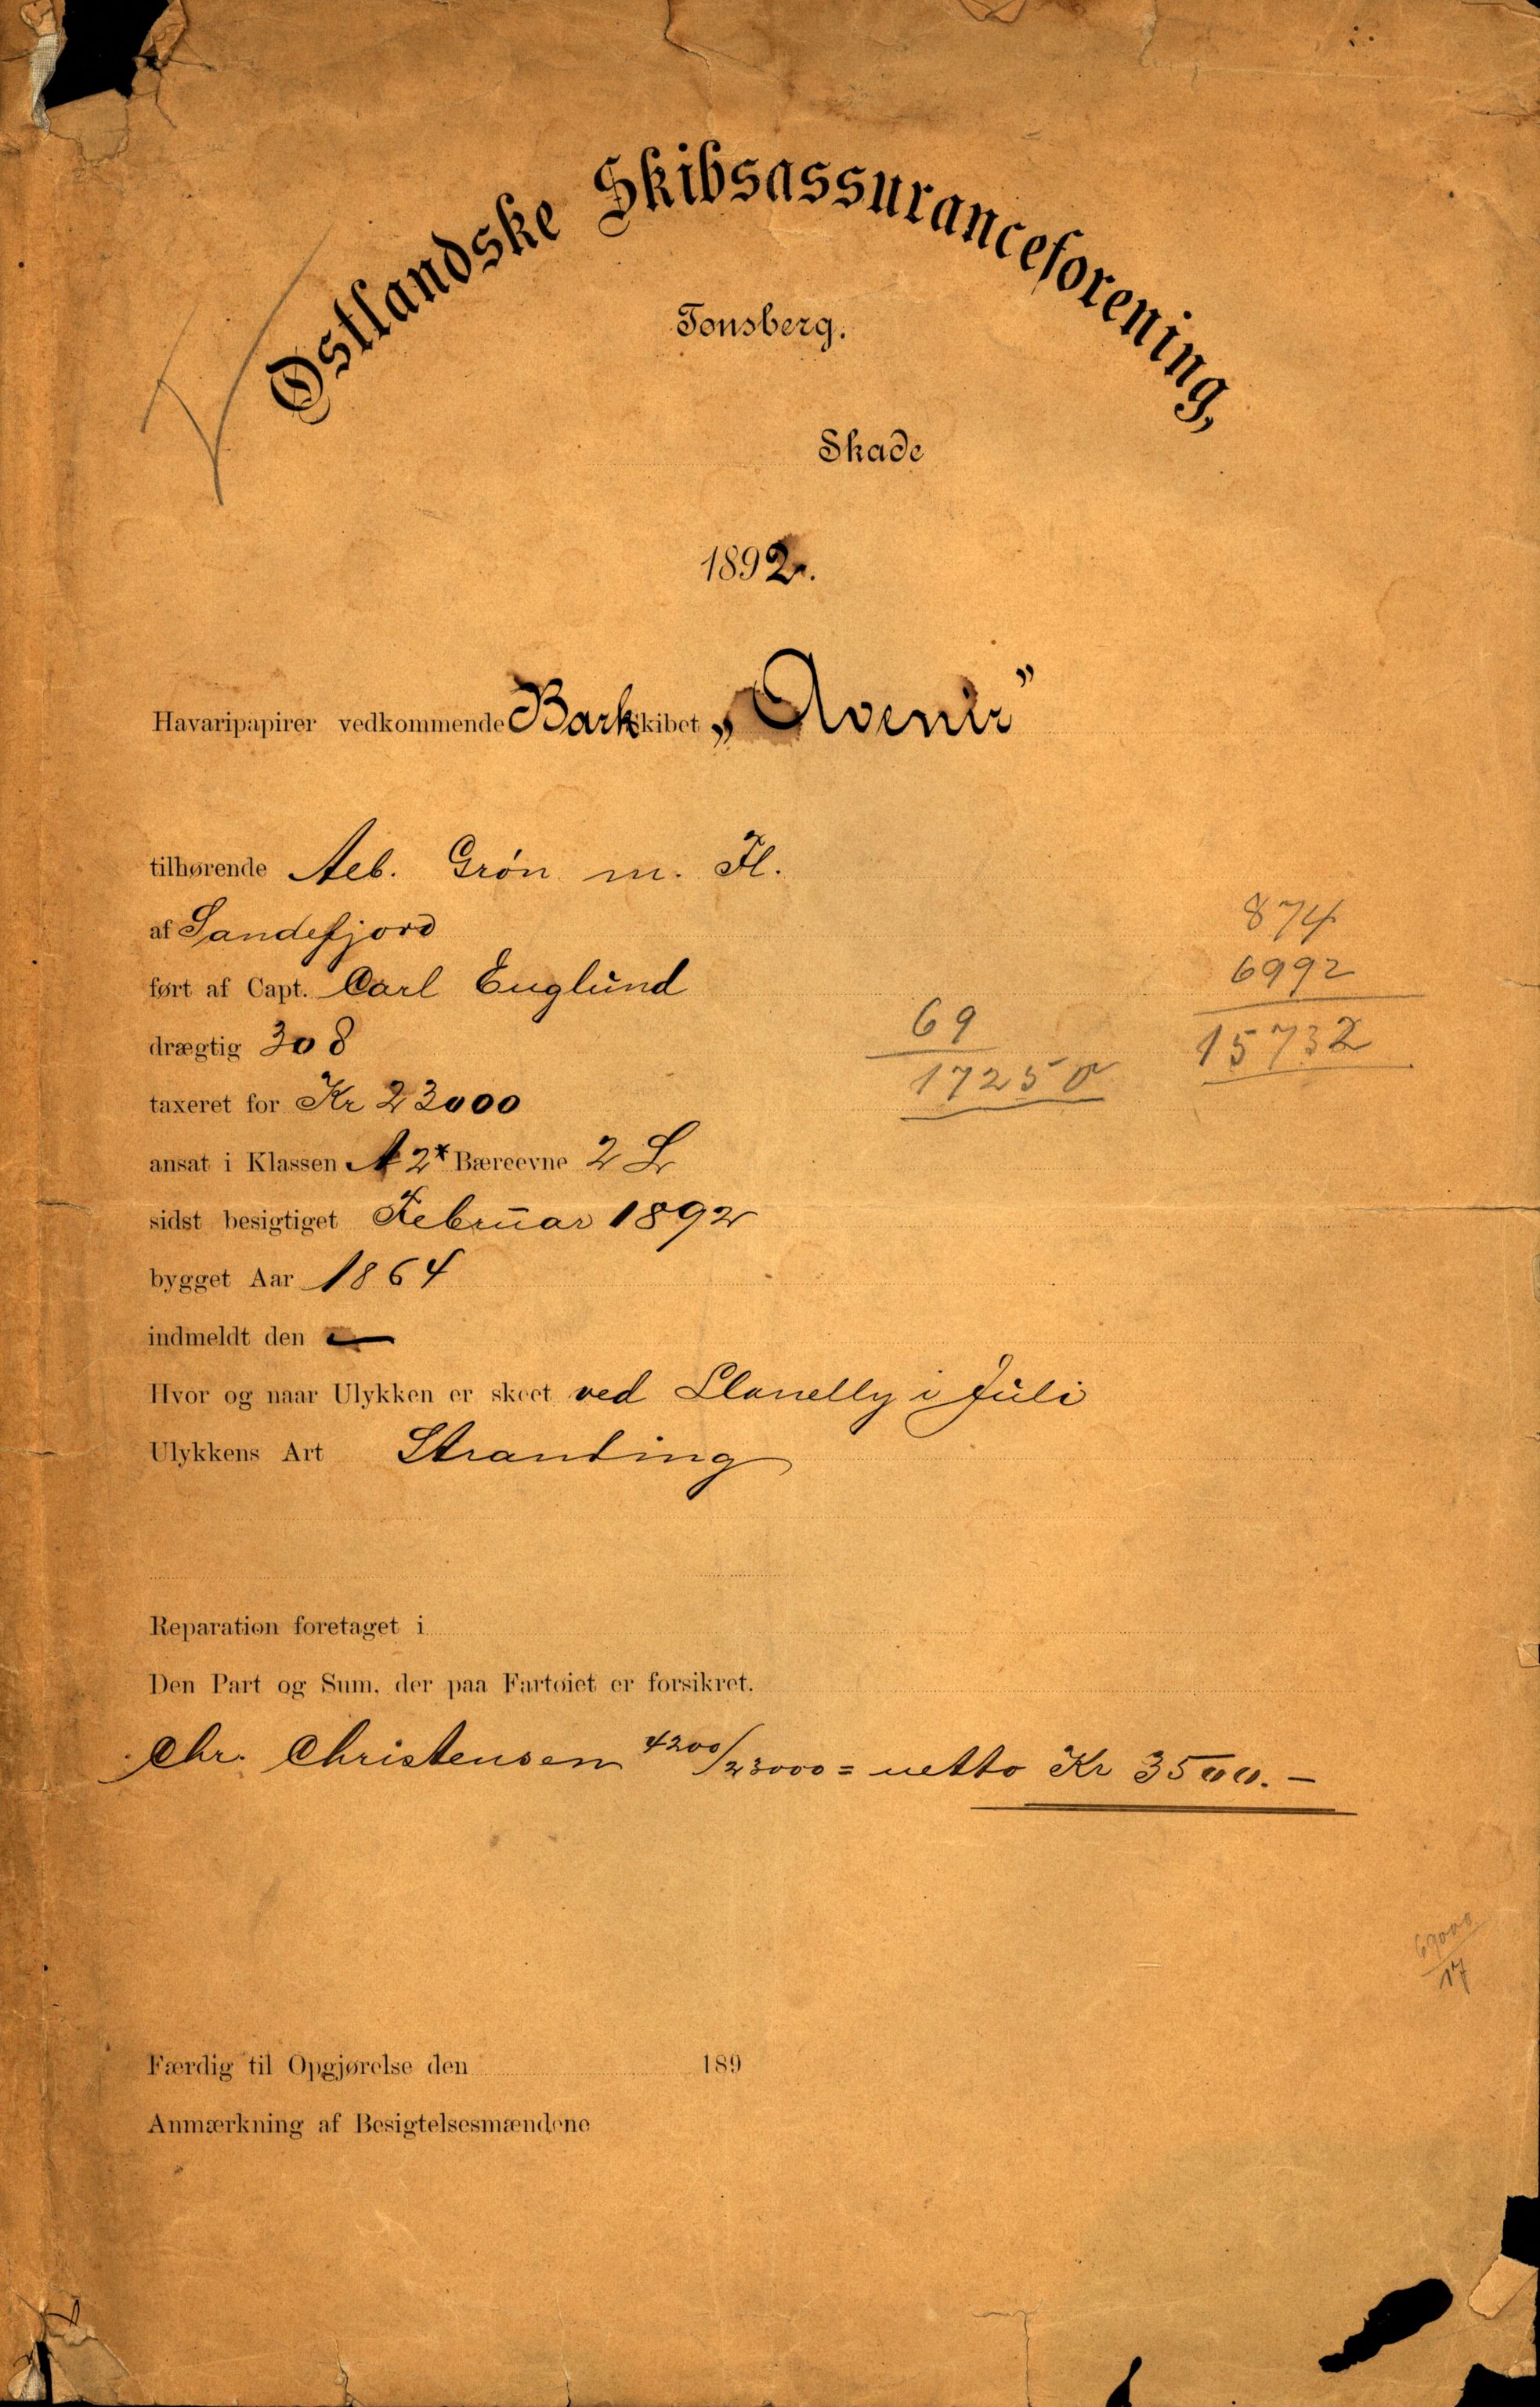 Østlandske Skibsassuranceforening,
Tønsberg.
Skade
1892.
Havaripapirer vedkommende Bark skibet „Avenir”
tilhørende Aeb. Grøn m. Fl.
af Sandefjord
ført af Capt. Carl Englund
drægtig 308
taxeret for Kr 23000
ansat i Klassen A 2* Bæreevne 2 L
sidst besigtiget Februar 1892
bygget Aar 1864
indmeldt den —
Hvor og naar Ulykken er skeet ved Llanelly i Juli
Ulykkens Art Stranding
874
6992
15732
69
17250
Reparation foretaget i
Den Part og Sum, der paa Fartøiet er forsikret.
Chr. Christensen 4200/23000 = netto Kr 3500.—
69000
17
Færdig til Opgjørelse den 189
Anmærkning af Besigtelsesmændene